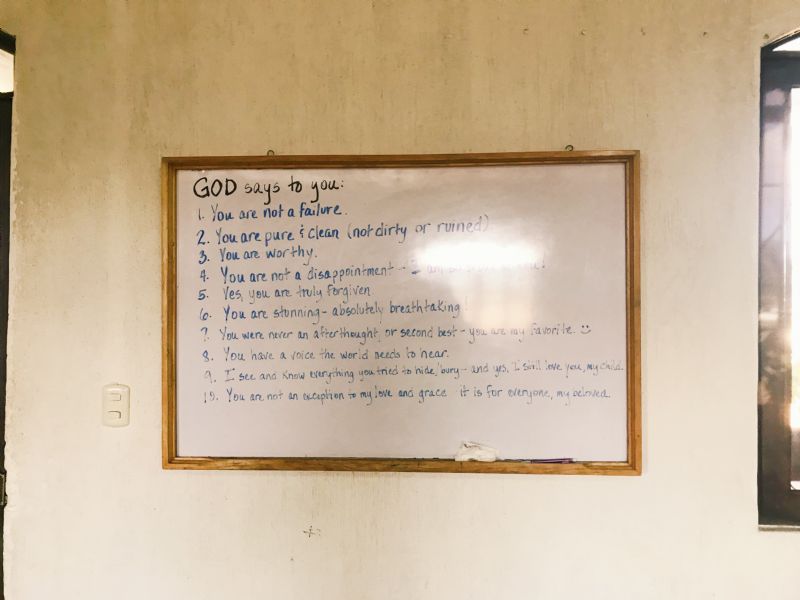 GOD says to you:
1. You are not a failure.
2. You are pure & clean (not dirty or ruined)
3. You are worthy.
4. You are not a disappointment - I am
5. Yes, you are truly forgiven.
6. You are stunning - absolutely breathtaking!
7. You were never an afterthought, or second best - you are my favorite. ☺
8. You have a voice the world needs to hear.
9. I see and know everything you tried to hide/bury - and yes, I still love you, my child.
10. You are not an exception to my love and grace it is for everyone, my beloved.